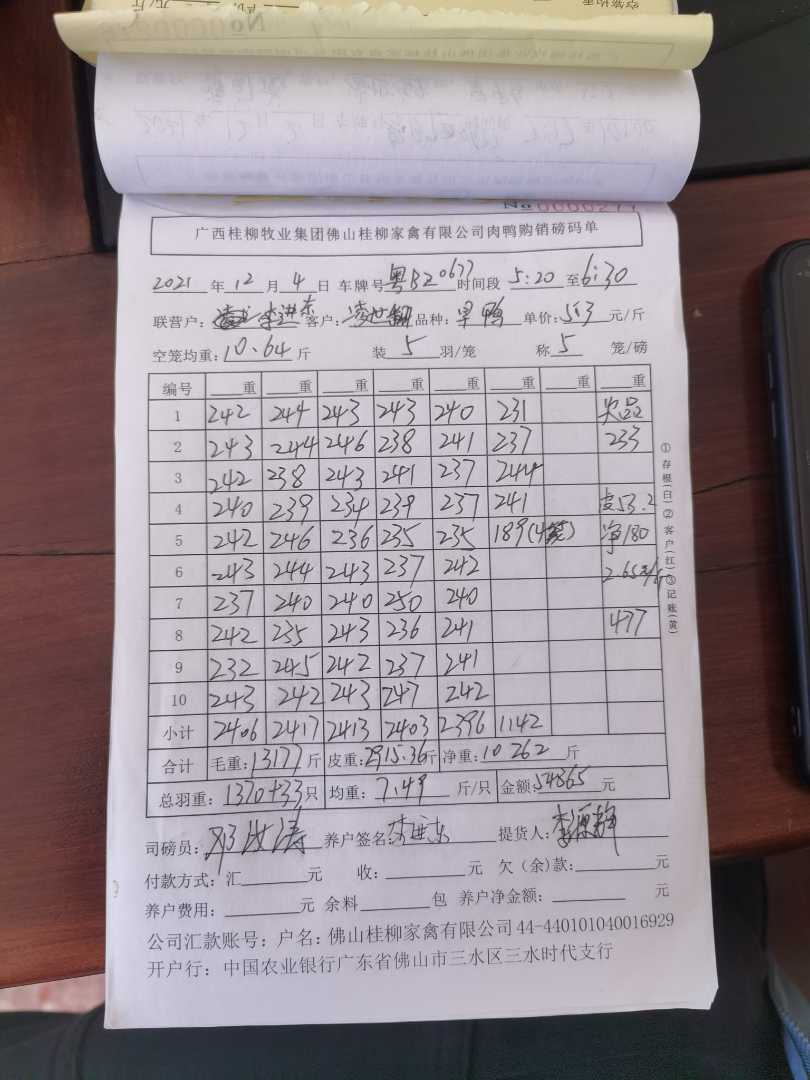 No 0000277
广西桂柳牧业集团佛山桂柳家禽有限公司肉鸭购销磅码单
2021 年 12 月 4 日 车牌号 粤B20677 时间段 5:20 至 6:30
联营户: 李进东 客户: 凌世 品种: 旱鸭 单价: 5.3 元/斤
空笼均重: 10.64 斤 装 5 羽/笼 称 5 笼/磅
编号 重 重 重 重 重 重 重 重
1 242 244 243 243 240 231 次品
2 243 244 246 238 241 237 233
3 242 238 243 241 237 244
4 240 239 234 239 237 241 皮53.2
5 242 246 236 235 235 189(4笼) 净180
6 243 244 243 237 242 2.65元/斤
7 237 240 240 250 240
8 242 235 243 236 241 477
9 232 245 242 237 241
10 243 242 243 247 242
小计 2406 2417 2413 2403 2396 1142
合计 毛重: 13177 斤 皮重: 2915.36 斤 净重: 10262 斤
总羽重: 1370+33 只 均重: 7.49 斤/只 金额: 54365 元
司磅员: 邓 涛 养户签名: 李进东 提货人: 李
付款方式: 汇 元 收: 元 欠(余)款: 元
养户费用: 元 余料 包 养户净金额: 元
公司汇款账号: 户名: 佛山桂柳家禽有限公司 44-440101040016929
开户行: 中国农业银行广东省佛山市三水区三水时代支行
①存根(白)②客户(红)③记账(黄)